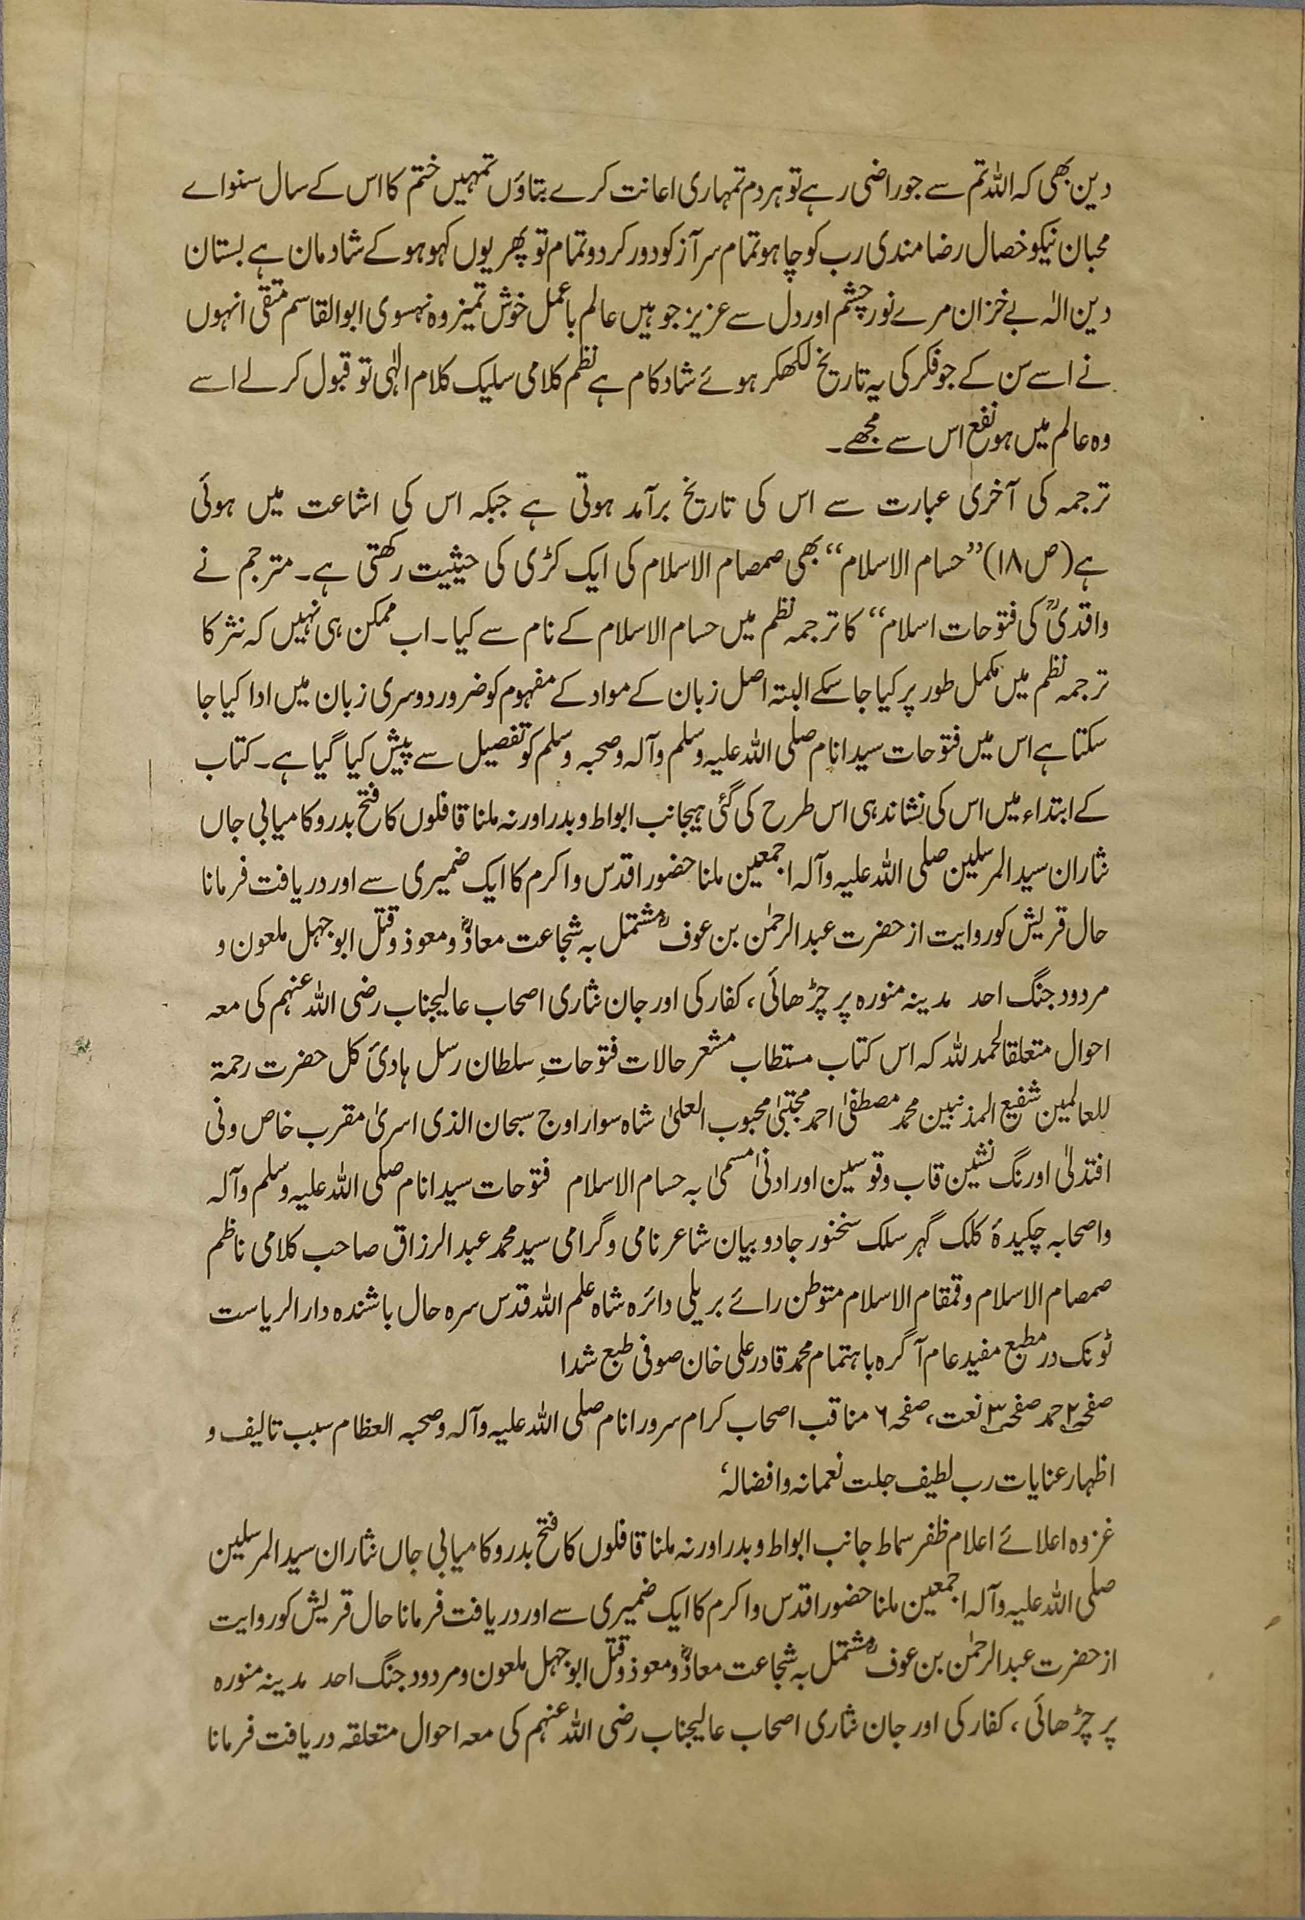 دین بھی کہ اللہ تم سے جو راضی رہے تو ہر دم تمہاری اعانت کرے بتاؤں تمہیں ختم کا اس کے سال سنو اے
محبان نیکو خصال رضا مندی رب کو چاہو تمام سر آز کو دور کر دو تمام تو پھر یوں کہو ہو کے شادمان ہے بستان
دین الٰہ بے خزان مرے نور چشم اور دل سے عزیز جو ہیں عالم با عمل خوش تمیز وہ نہسوی ابو القاسم متقی انہوں
نے اسے سن کے جو فکر کی یہ تاریخ لکھکر ہوئے شاد کام ہے نظم کلامی سلیک کلام الٰہی تو قبول کر لے اسے
وہ عالم میں ہو نفع اس سے مجھے۔
ترجمہ کی آخری عبارت سے اس کی تاریخ برآمد ہوتی ہے جبکہ اس کی اشاعت میں ہوئی
ہے (ص ۱۸) ’’حسام الاسلام‘‘ بھی صمصام الاسلام کی ایک کڑی کی حیثیت رکھتی ہے۔ مترجم نے
واقدیؒ کی فتوحات اسلام‘‘ کا ترجمہ نظم میں حسام الاسلام کے نام سے کیا۔ اب ممکن ہی نہیں کہ نثر کا
ترجمہ نظم میں مکمل طور پر کیا جا سکے البتہ اصل زبان کے مواد کے مفہوم کو ضرور دوسری زبان میں ادا کیا جا
سکتا ہے اس میں فتوحات سید انام صلی اللہ علیہ وسلم وآلہ وصحبہ وسلم کو تفصیل سے پیش کیا گیا ہے۔ کتاب
کے ابتداء میں اس کی نشاندہی اس طرح کی گئی ہیجانب ابواط و بدر اور نہ ملنا قافلوں کا فتح بدر و کامیابی جاں
نثاران سید المرسلین صلی اللہ علیہ وآلہ اجمعین ملنا حضور اقدس و اکرم کا ایک ضمیری سے اور دریافت فرمانا
حال قریش کو روایت از حضرت عبدالرحمٰن بن عوفؓ مشتمل بہ شجاعت معاذؓ و معوذ و قتل ابو جہل ملعون و
مردود جنگ احد مدینہ منورہ پر چڑھائی، کفار کی اور جان نثاری اصحاب عالیجناب رضی اللہ عنہم کی معہ
احوال متعلقا الحمدللہ کہ اس کتاب مستطاب مشعر حالات فتوحاتِ سلطان رسل ہادیٔ کل حضرت رحمۃ
للعالمین شفیع المذنبین محمد مصطفیٰ احمد مجتبیٰ محبوب العلیٰ شاہ سوار اوج سبحان الذی اسریٰ مقرب خاص ونی
افتدلیٰ اورنگ نشین قاب و قوسین اور ادنیٰ مسمیٰ بہ حسام الاسلام فتوحات سید انام صلی اللہ علیہ وسلم وآلہ
واصحابہ چکیدۂ کلک گہر سلک سخنور جادو بیان شاعر نامی و گرامی سید محمد عبدالرزاق صاحب کلامی ناظم
صمصام الاسلام و قمقام الاسلام متوطن رائے بریلی دائرہ شاہ علم اللہ قدس سرہ حال باشندہ دار الریاست
ٹونک در مطبع مفید عام آگرہ باہتمام محمد قادر علی خان صوفی طبع شدا
صفحہ ۲ حمد صفحہ ۳ نعت، صفحہ ۶ مناقب اصحاب کرام سرور انام صلی اللہ علیہ وآلہ وصحبہ العظام سبب تالیف و
اظہار عنایات رب لطیف جلت نعمانہ وافضالہٗ
غزوہ اعلائے اعلام ظفر سماط جانب ابواط و بدر اور نہ ملنا قافلوں کا فتح بدر و کامیابی جاں نثاران سید المرسلین
صلی اللہ علیہ وآلہ اجمعین ملنا حضور اقدس و اکرم کا ایک ضمیری سے اور دریافت فرمانا حال قریش کو روایت
از حضرت عبدالرحمٰن بن عوفؓ مشتمل بہ شجاعت معاذؓ و معوذ و قتل ابو جہل ملعون و مردود جنگ احد مدینہ منورہ
پر چڑھائی، کفار کی اور جان نثاری اصحاب عالیجناب رضی اللہ عنہم کی معہ احوال متعلقہ دریافت فرمانا